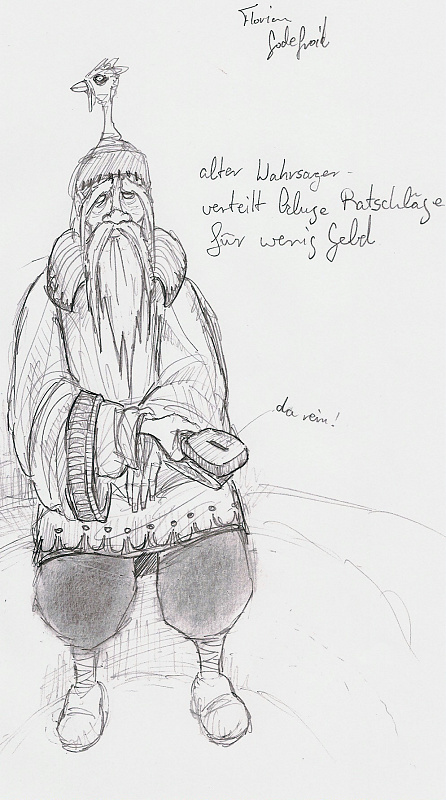 Florian
alter Wahrsager -
verteilt kluge Ratschläge
für wenig Geld
da rein!